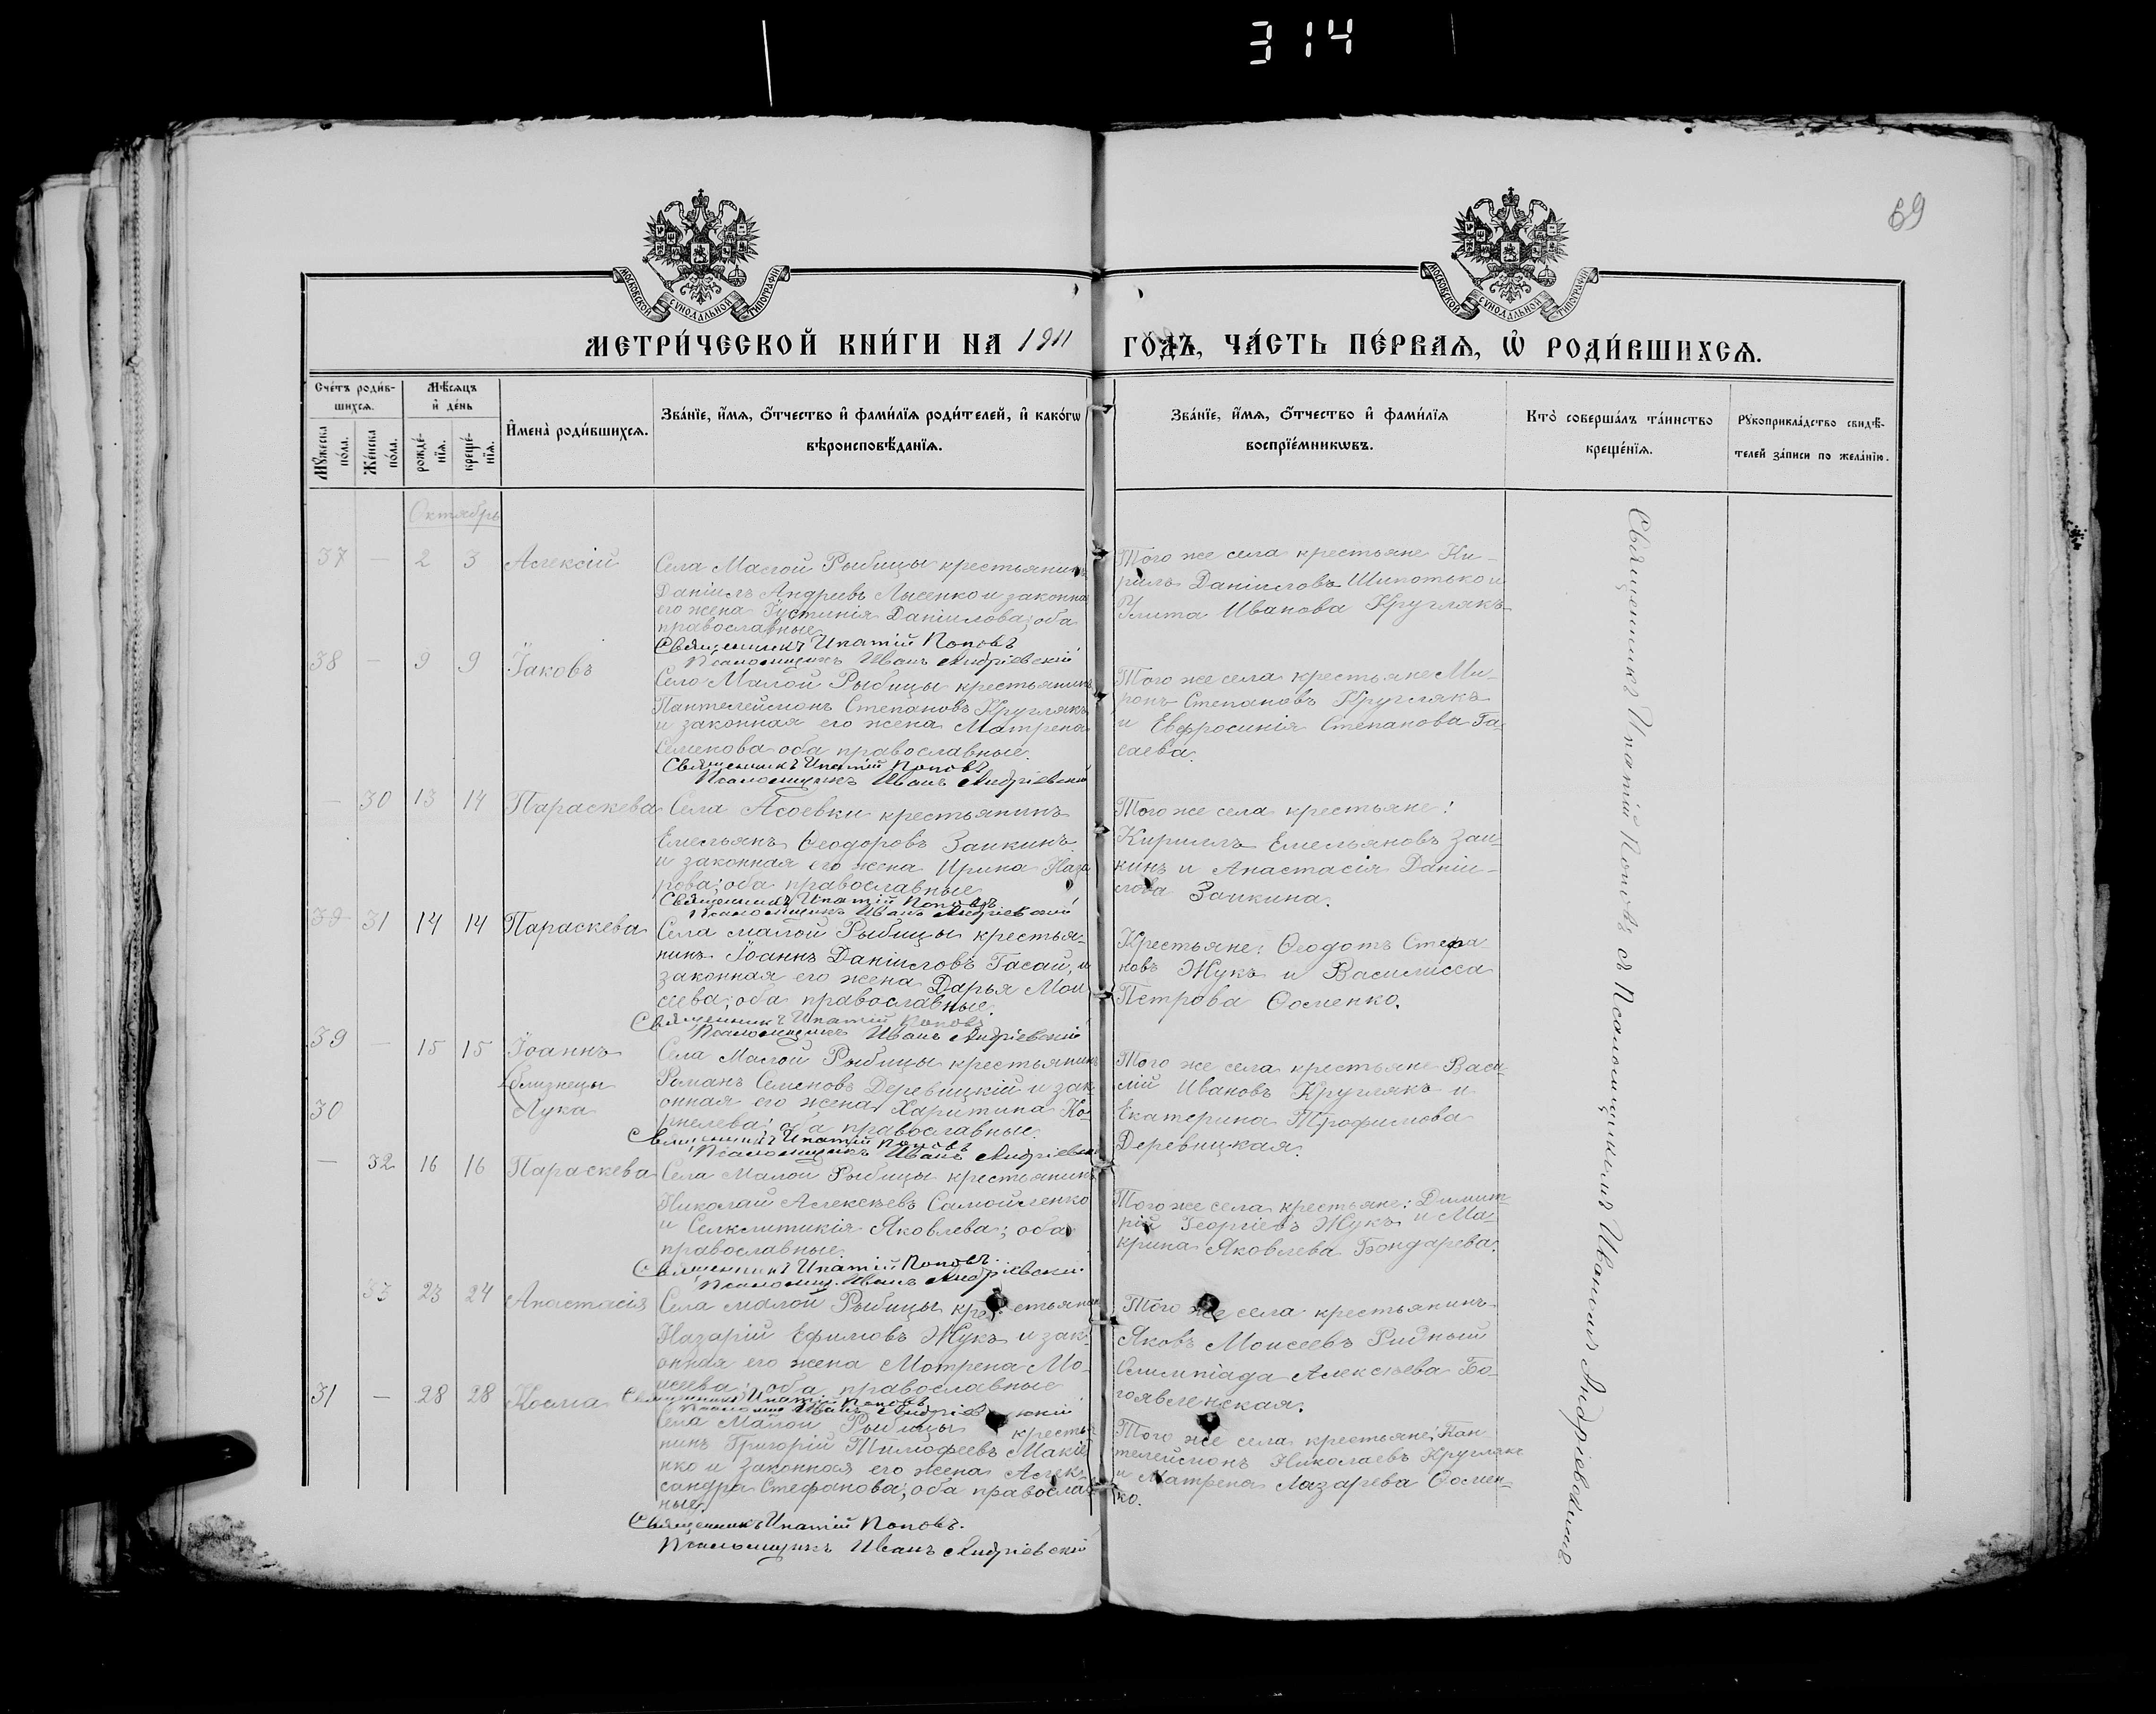 314
69
МОСКОВСКОЙ СУНОДАЛЬНОЙ ТИПОГРАФІИ
МОСКОВСКОЙ СУНОДАЛЬНОЙ ТИПОГРАФІИ
МЕТРИ́ЧЕСКОЙ КНИ́ГИ НА 1911 ГО́ДЪ, ЧА́СТЬ ПЕ́РВАЯ, Ѡ РОДИ́ВШИХСЯ.
Сче́тъ роди́в-
шихся.
Мѣсяцъ
и де́нь
Мꙋжеска по́ла.
Же́нска по́ла.
рожде́-
нїя.
креще́-
нїя.
Имена̀ роди́вшихся.
Зва́нїе, и́мя, ѻ́тчество и фами́лїя роди́телей, и како́гѡ
вѣроисповѣ́данїя.
Зва́нїе, и́мя, ѻ́тчество и фами́лїя
воспрїе́мникѡвъ.
Кто̀ соверша́лъ та́инство
креще́нїя.
Рꙋкоприкла́дство свидѣ́-
телей за́писи по жела́нїю.
Октябрь
37 — 2 3 Алексій
Села Малой Рыбицы крестьянинъ
Даніилъ Андреевъ Лысенко и законная
его жена Іустинія Даніилова; оба
православные
Священникъ Ипатій Поповъ
Псаломщикъ Иванъ Андріевскій
Того же села крестьяне Ки-
рилъ Даніиловъ Шипотько и
Улита Иванова Круглякъ
38 — 9 9 Іаковъ
Село Малой Рыбицы крестьянинъ
Пантелеймонъ Степановъ Круглякъ
и законная его жена Матрена
Семенова оба православные.
Священникъ Ипатій Поповъ
Псаломщикъ Иванъ Андріевскій
Того же села крестьяне Ми-
ронъ Степановъ Круглякъ
и Евфросинія Степанова Га-
саева.
— 30 13 14 Параскева
Села Асоевки крестьянинъ
Емельянъ Ѳеодоровъ Заикинъ
и законная его жена Ирина Наза
рова; оба православные
Священникъ Ипатій Поповъ
Псаломщикъ Иванъ Андріевскій
Того же села крестьяне:
Кириллъ Емельяновъ Заи-
кинъ и Анастасія Даніи-
лова Заикина.
39 31 14 14 Параскева
Села Малой Рыбицы крестья-
нинъ Іоаннъ Даніиловъ Гасай, и
законная его жена Дарья Мои
сеева; оба православные.
Священникъ Ипатій Поповъ
Псаломщикъ Иванъ Андріевскій
Крестьяне: Ѳеодотъ Стефа
новъ Жукъ и Василисса
Петрова Ѳоменко.
39 — 15 15 Іоаннъ
близнецы
30 Лука
Села Малой Рыбицы крестьянинъ
Романъ Семеновъ Деревицкій и зак
онная его жена Харитина Ко-
рнелева; оба православные.
Священникъ Ипатій Поповъ
Псаломщикъ Иванъ Андріевскій
Того же села крестьяне Васи-
лій Ивановъ Круглякъ и
Екатерина Трофимова
Деревицкая.
— 32 16 16 Параскева
Села Малой Рыбицы крестьянинъ
Николай Алексѣевъ Самойленко
и Селклитикія Яковлева; оба
православные
Священникъ Ипатій Поповъ.
Псаломщ. Иванъ Андріевскій
Того же села крестьяне: Димит
рій Георгіевъ Жукъ и Ма-
крина Яковлева Бондарева.
33 23 24 Анастасія
Села Малой Рыбицы крестьянин
Назарій Ефимовъ Жукъ и зак
онная его жена Мотрена Мо-
исеева; оба православные
Священникъ Ипатій Поповъ
Псаломщ Иванъ Андріевскій
Того же села крестьянинъ
Яковъ Моисеевъ Ридный
Олимпіада Алексѣева Бо-
гоявленская.
31 — 28 28 Косма
Села Малой Рыбицы крестья
нинъ Григорій Тимофеевъ Макіе
нко и законная его жена Алек-
сандра Стефанова; оба православ
ные.
Священникъ Ипатій Поповъ.
Псаломщикъ Иванъ Андріевскій
Того же села крестьяне Пан
телеймонъ Николаевъ Круглякъ
и Матрена Лазарева Ѳомен-
ко.
Священникъ Ипатій Поповъ съ Псаломщикомъ Иваномъ Андріевскимъ